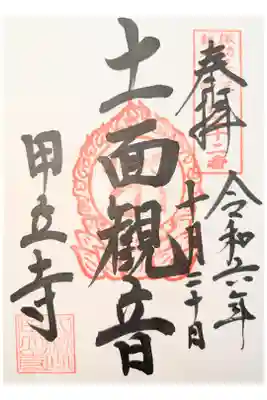 奉拝
令和六年
十月二十日
十一面観音
甲立寺